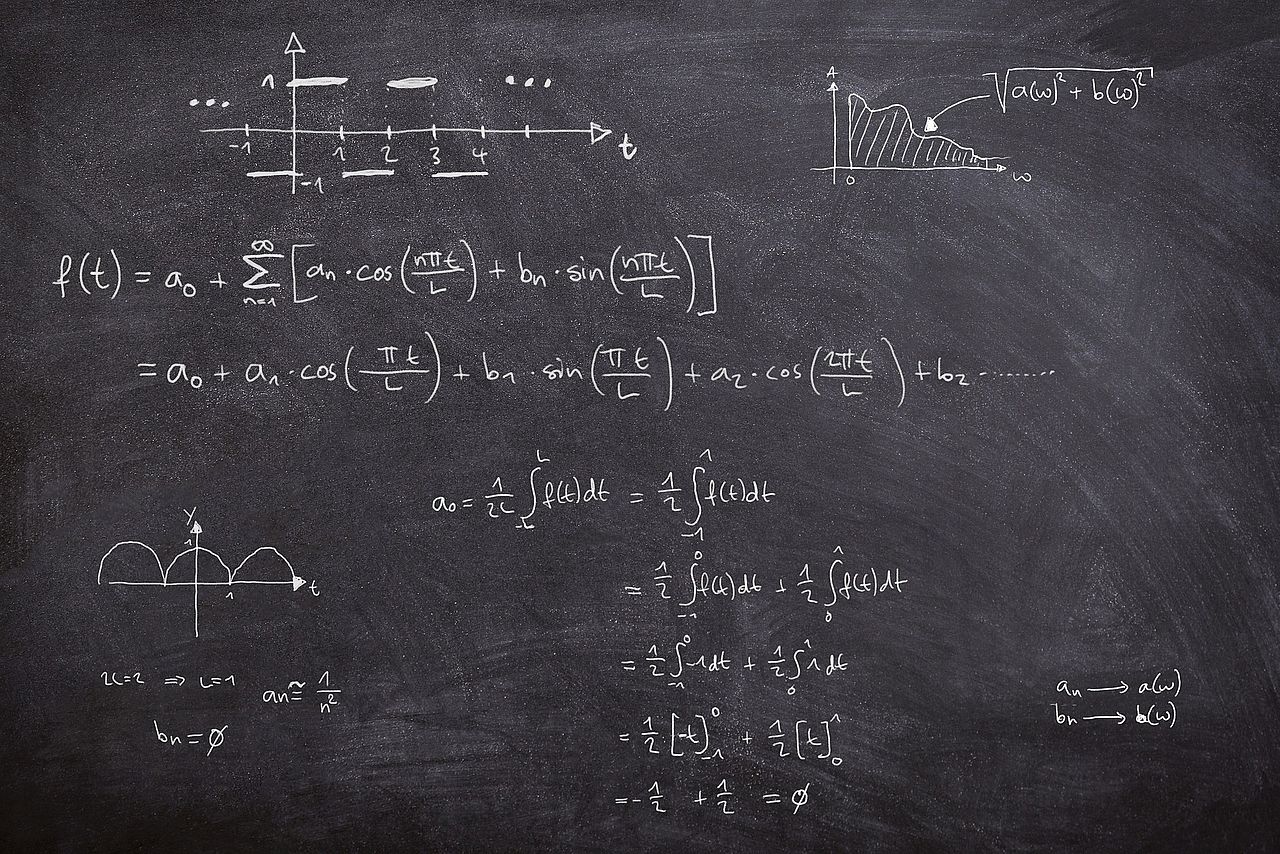 1
... ...
-1 1 2 3 4 t
-1
A
√a(ω)² + b(ω)²
0 ω
f(t) = a₀ + ∞∑n=1 [aₙ · cos(nπt/L) + bₙ · sin(nπt/L)]
= a₀ + a₁ · cos(πt/L) + b₁ · sin(πt/L) + a₂ · cos(2πt/L) + b₂ ........
a₀ = 1/2L ∫_-L^L f(t)dt = 1/2 ∫_-1^1 f(t)dt
= 1/2 ∫_-1^0 f(t)dt + 1/2 ∫_0^1 f(t)dt
= 1/2 ∫_-1^0 -1dt + 1/2 ∫_0^1 1dt
= 1/2 [-t]_-1^0 + 1/2 [t]_0^1
= -1/2 + 1/2 = ∅
y
1
1 t
2L=2 ⇒ L=1 aₙ ≅ 1/n²
bₙ = ∅
aₙ → a(ω)
bₙ → b(ω)